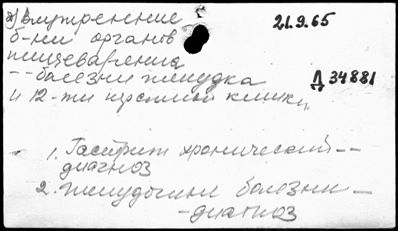 ж) внутренние 21.9.65
б-ни органов
пищеварения
--болезни желудка Д 34881
и 12-ти перстной кишки
1. Гастрит хронический--
диагноз
2. Желудочные болезни--
-диагноз